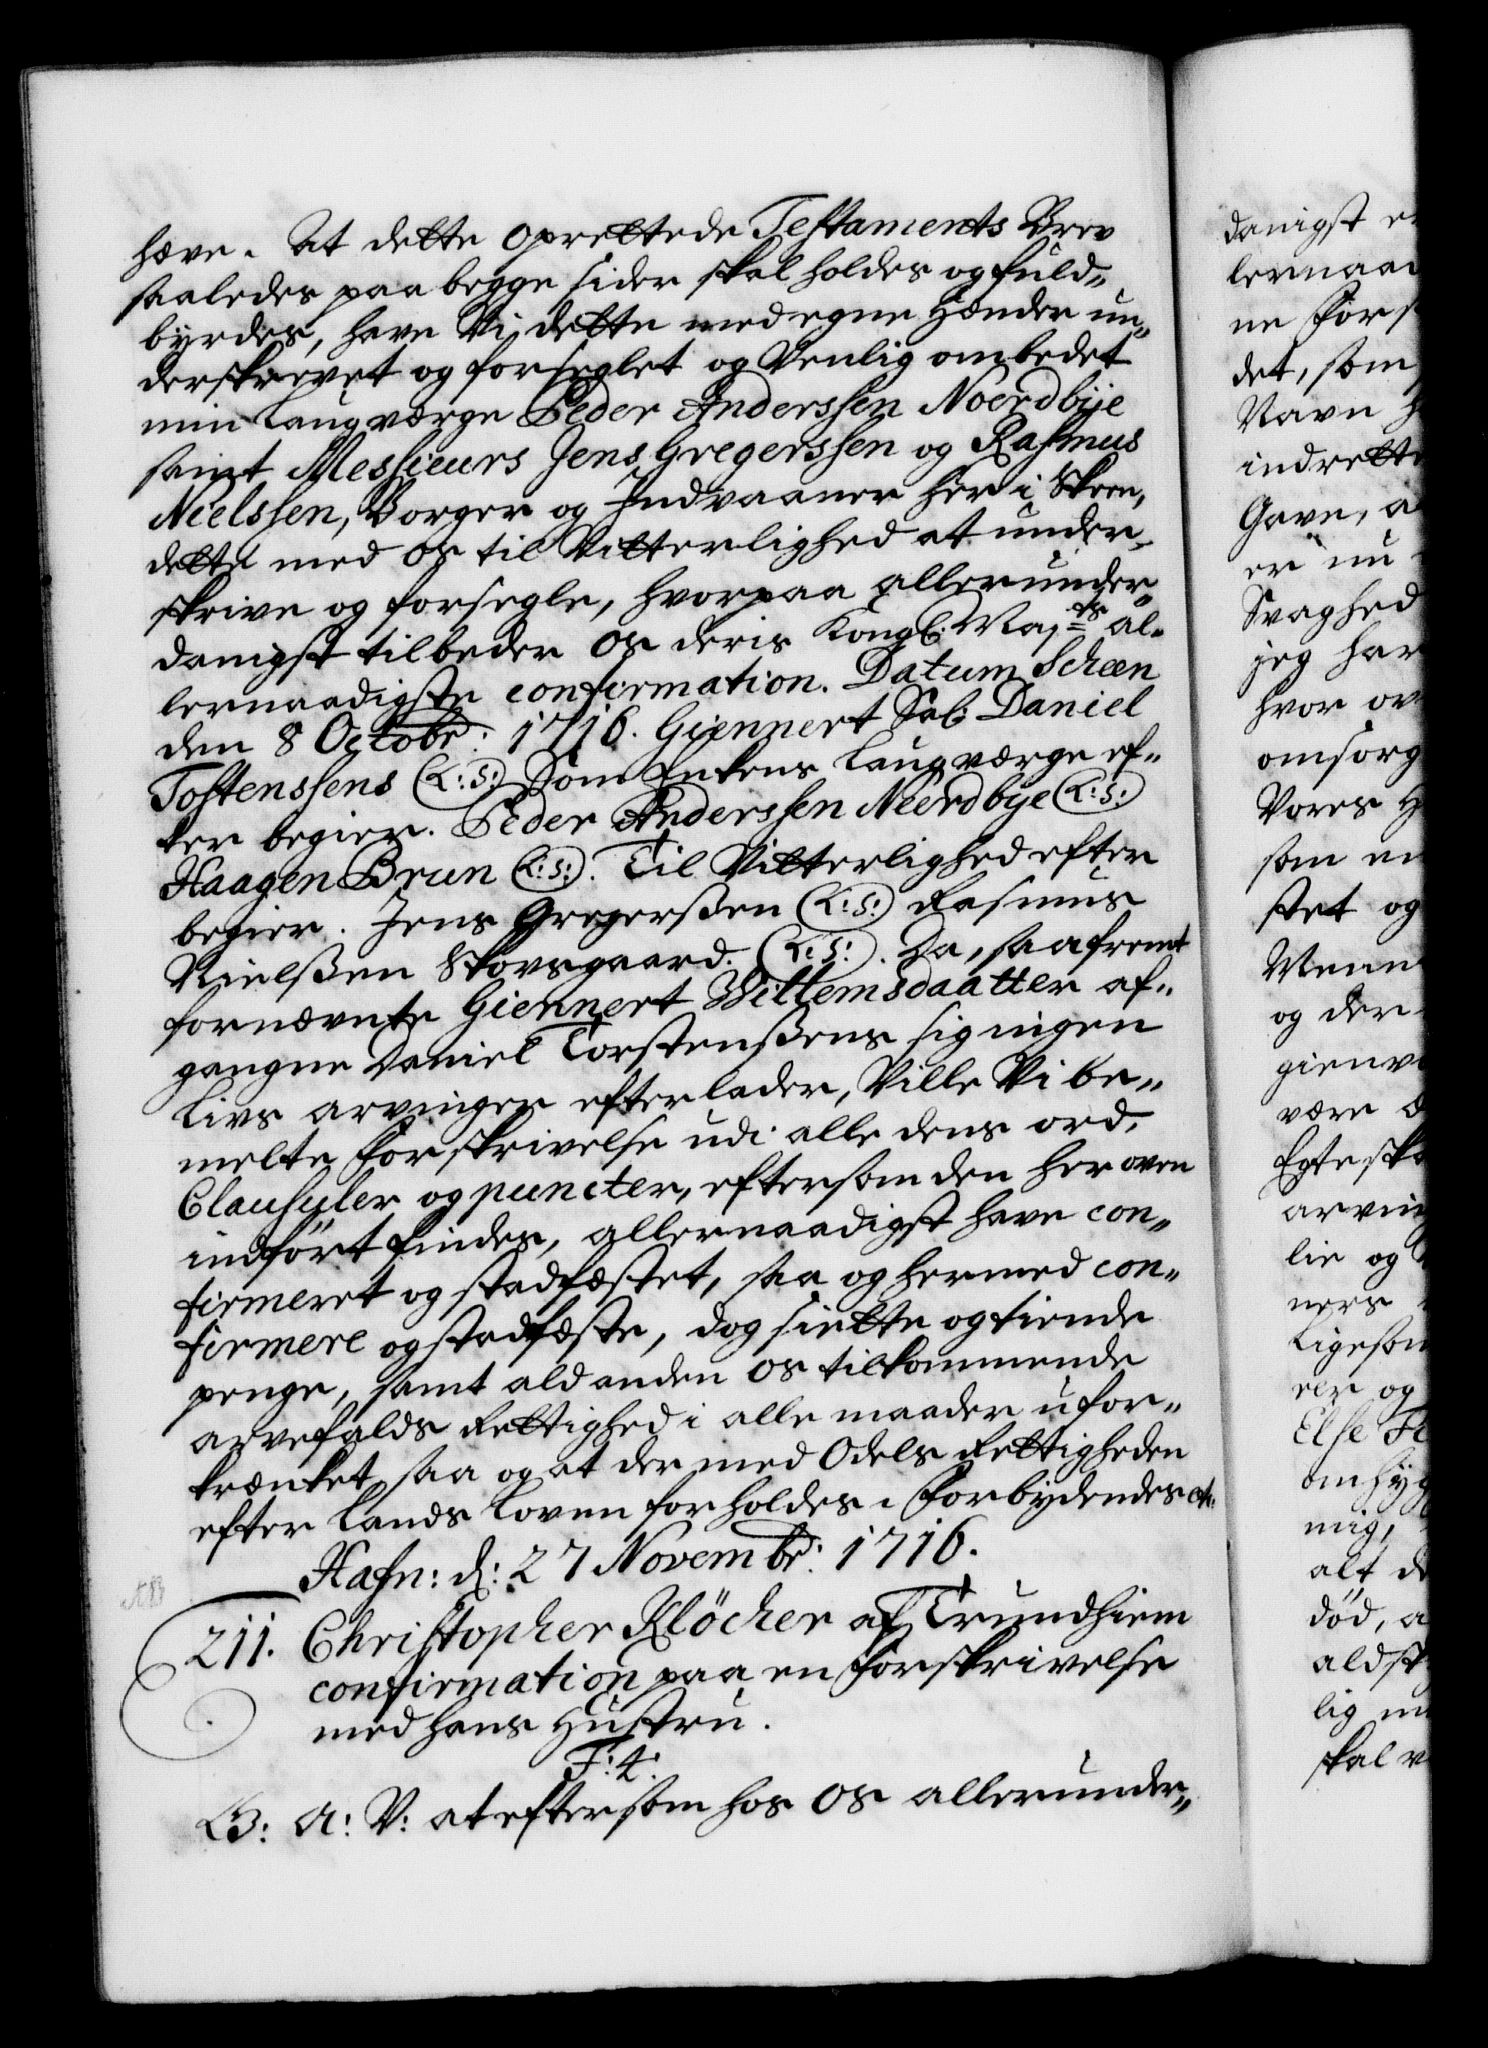 hæve. At dette oprettede Testaments Brev
saaledes paa begge sider skal holdes og fuld-
byrdes, have Vi dette med egne Hænder un-
derskrevet og forseglet og Venlig ombedet
min Laugværge Peder Anderssen Noerdbÿe
samt Messieurs Jens Gregerssen og Rasmus
Nielssen, Borger og Indvaaner her i Skeen,
dette med os til Vitterlighed at under-
skrive og forsegle, hvorpaa allerunder-
danigst tilbeder os deris Kongl. Majts al-
lernaadigste confirmation. Datum Scheen
den 8 Octobr: 1716. Giennert Sal: Daniel
Tostenssens (L:S:) Som Enkens Laugværge ef-
ter begier. Peder Anderssen Neerdbye (L:S:)
Haagen Brun (L:S:). Til Vitterlighed efter
begier. Jens Gregerssen (L:S:) Rasmus
Nielssen Skovsgaard. (L:S:). Da, saafremt
fornævnte Giennert Willemsdaatter af-
gangne Daniel Torstenssens sig ingen
Livs arvinger efterlader, Ville Vi be-
melte Forskrivelse udi alle dens ord,
Clausuler og puncter, eftersom den her oven
indført findes, allernaadigst have con-
firmeret og stadfæstet, saa og hermed con-
firmere og stadfæste, dog siette og tiende
penge, samt ald anden os tilkommende
arvefalds Rettighed i alle maader ufor-
krænket, saa og at der med Odels Rettigheden
efter Lands Loven forholdes. Forbydendes etc:
Hafn: d: 27 Novembr: 1716.
211. Christopher Klöcher af Trundhiem
confirmation paa en Forskrivelse
med hans Hustru.
F: 4:
G: A: V: at eftersom hos os allerunder-
danigst e
lernaad
ne Fors
det, som
Navn H
indrette
Gave, a
er nu
Svaghed
jeg har
hvor ov
omsorg
Vores H
som en
stet og
Venn
og der
gienv
være
Egtesk
arvin
lie og
ners
Ligesom
elr og
Else Fi
omhyg
mig,
alt d
død, a
aldst
lig m
skal v